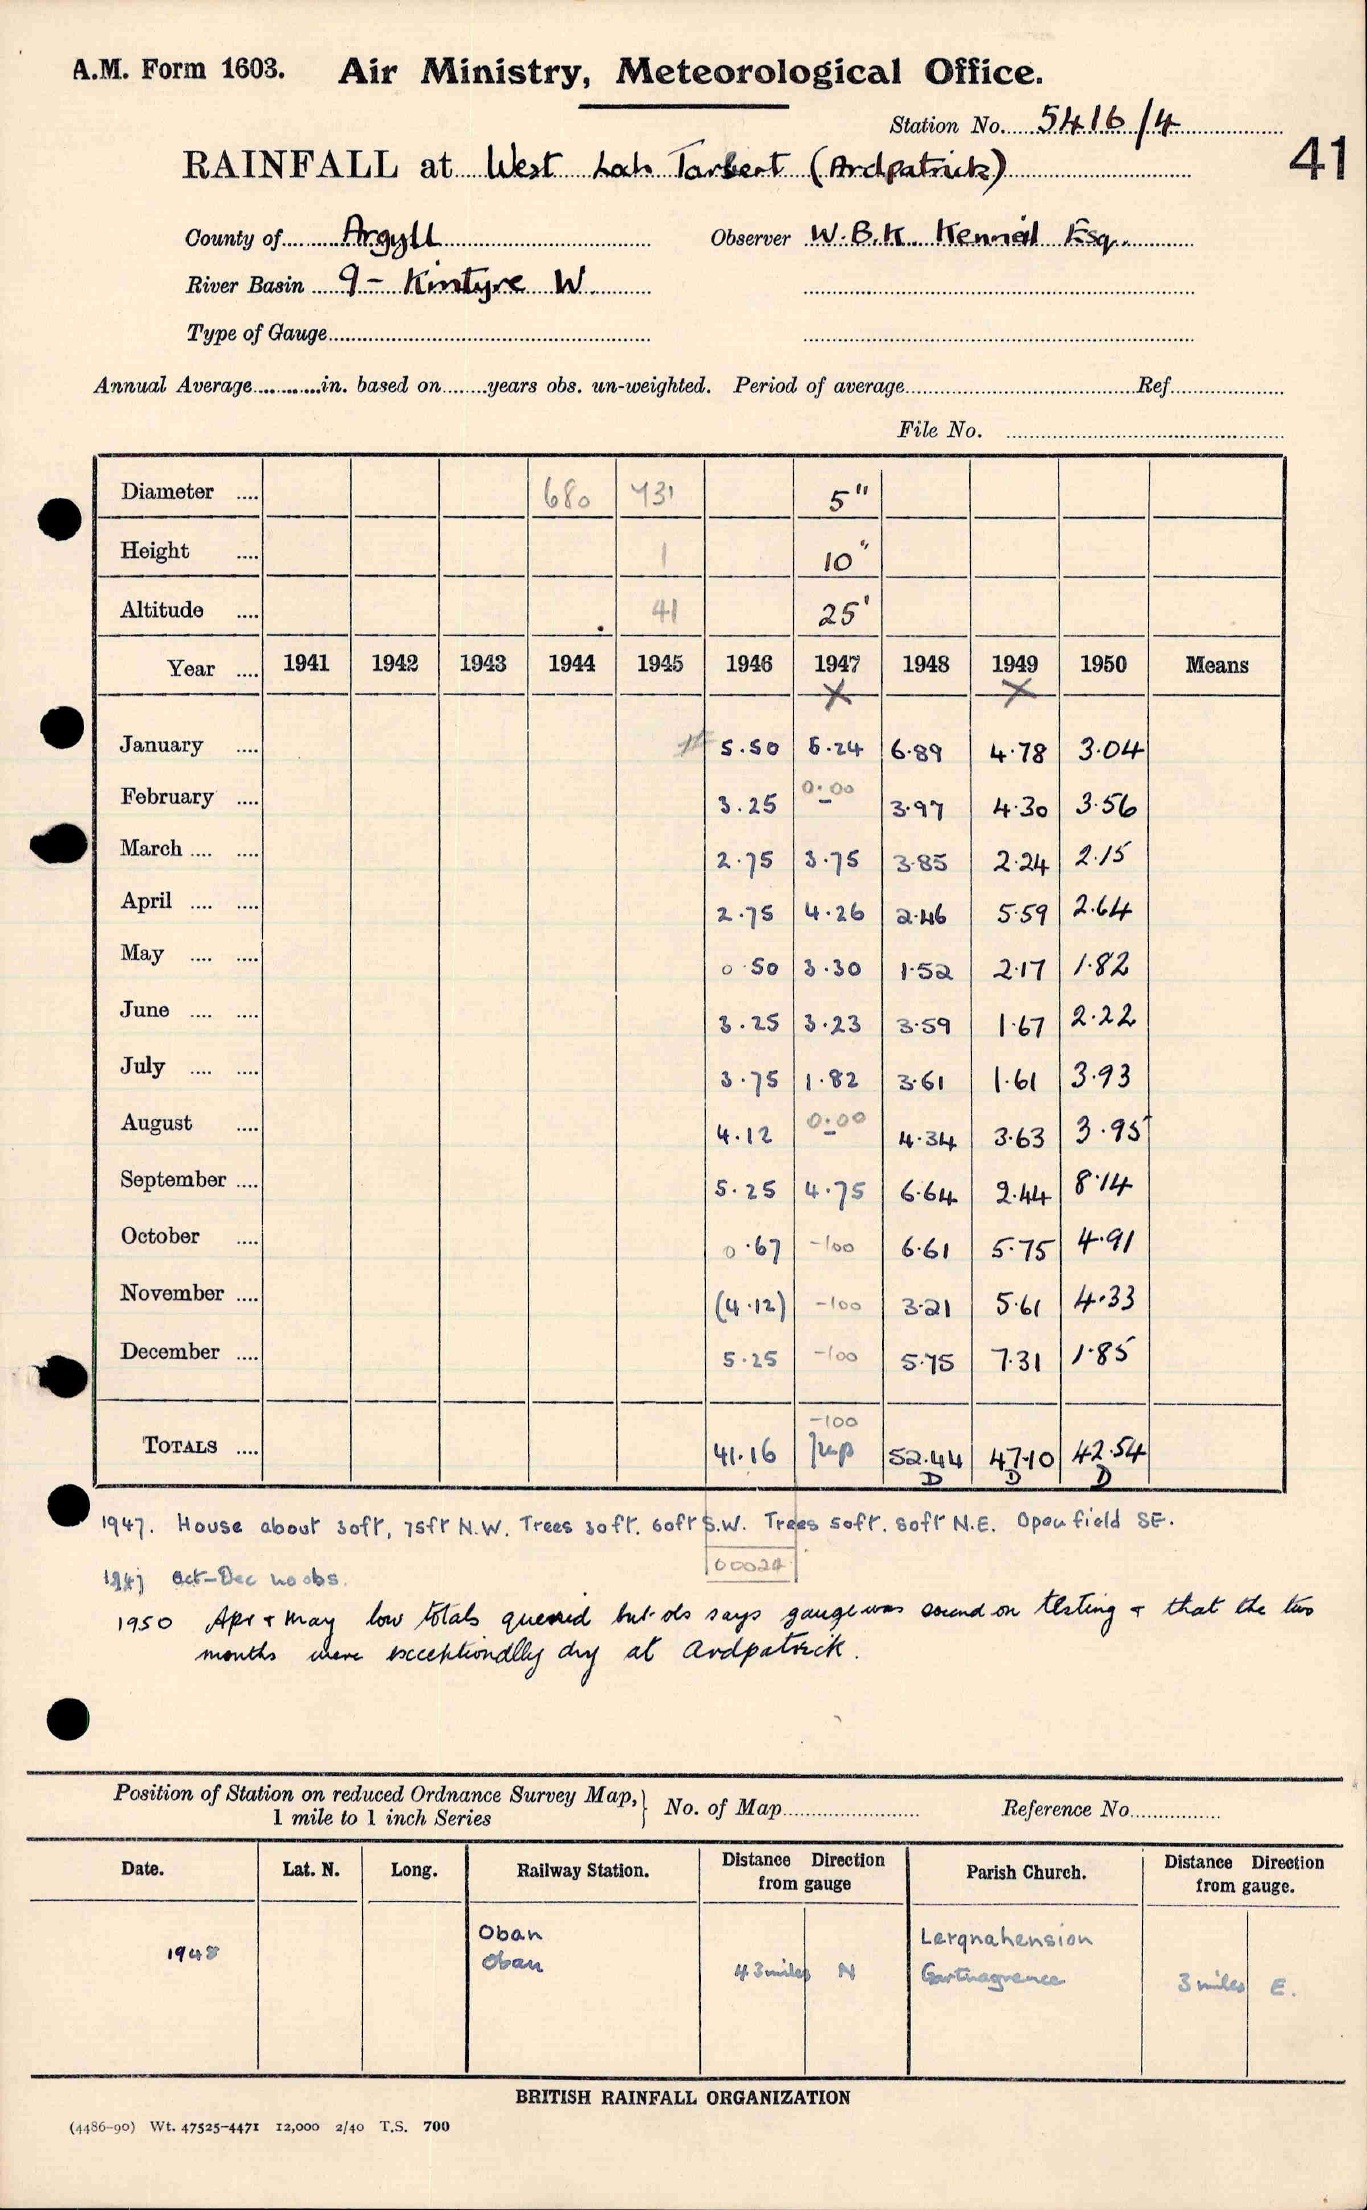 A.M. Form 1603. Air Ministry, Meteorological Office.
Station No. 5416/4
41
RAINFALL at West Loch Tarbert (Ardpatrick)
County of Argyll Observer W.B.K. Esq.
River Basin 9 - Kintyre W
Type of Gauge
Annual Average in. based on years obs. un-weighted. Period of average Ref
File No.
Diameter .... 680 731 5"
Height .... 1 10"
Altitude .... 41 25'
Year .... 1941 1942 1943 1944 1945 1946 1947 1948 1949 1950 Means
X X
January .... 5.50 6.24 6.89 4.78 3.04
February .... 3.25 0.00 - 3.97 4.30 3.56
March .... .... 2.75 3.75 3.85 2.24 2.15
April .... .... 2.75 4.26 2.46 5.59 2.64
May .... .... 0.50 3.30 1.52 2.17 1.82
June .... .... 3.25 3.23 3.59 1.67 2.22
July .... .... 3.75 1.82 3.61 1.61 3.93
August .... 4.12 0.00 - 4.34 3.63 3.95
September .... 5.25 4.75 6.64 2.44 8.14
October .... 0.67 -100 6.61 5.75 4.91
November .... (4.12) -100 3.21 5.61 4.33
December .... 5.25 -100 5.75 7.31 1.85
-100
TOTALS .... 41.16 52.44 47.10 42.54
D D D
1947. House about 30ft, 75ft N.W. Trees 30ft. 60ft S.W. Trees 50ft. 80ft N.E. Open field SE.
00024
1947 Oct-Dec no obs.
1950 Apr + May low totals queried but obs says gauge was sound on testing + that the two
months were exceptionally dry at Ardpatrick.
Position of Station on reduced Ordnance Survey Map, 1 mile to 1 inch Series } No. of Map Reference No.
Date. Lat. N. Long. Railway Station. Distance Direction from gauge Parish Church. Distance Direction from gauge.
Oban Lergnahension
1948 Oban 43 miles N 3 miles E.
BRITISH RAINFALL ORGANIZATION
(4486-90) Wt. 47525-4471 12,000 2/40 T.S. 700